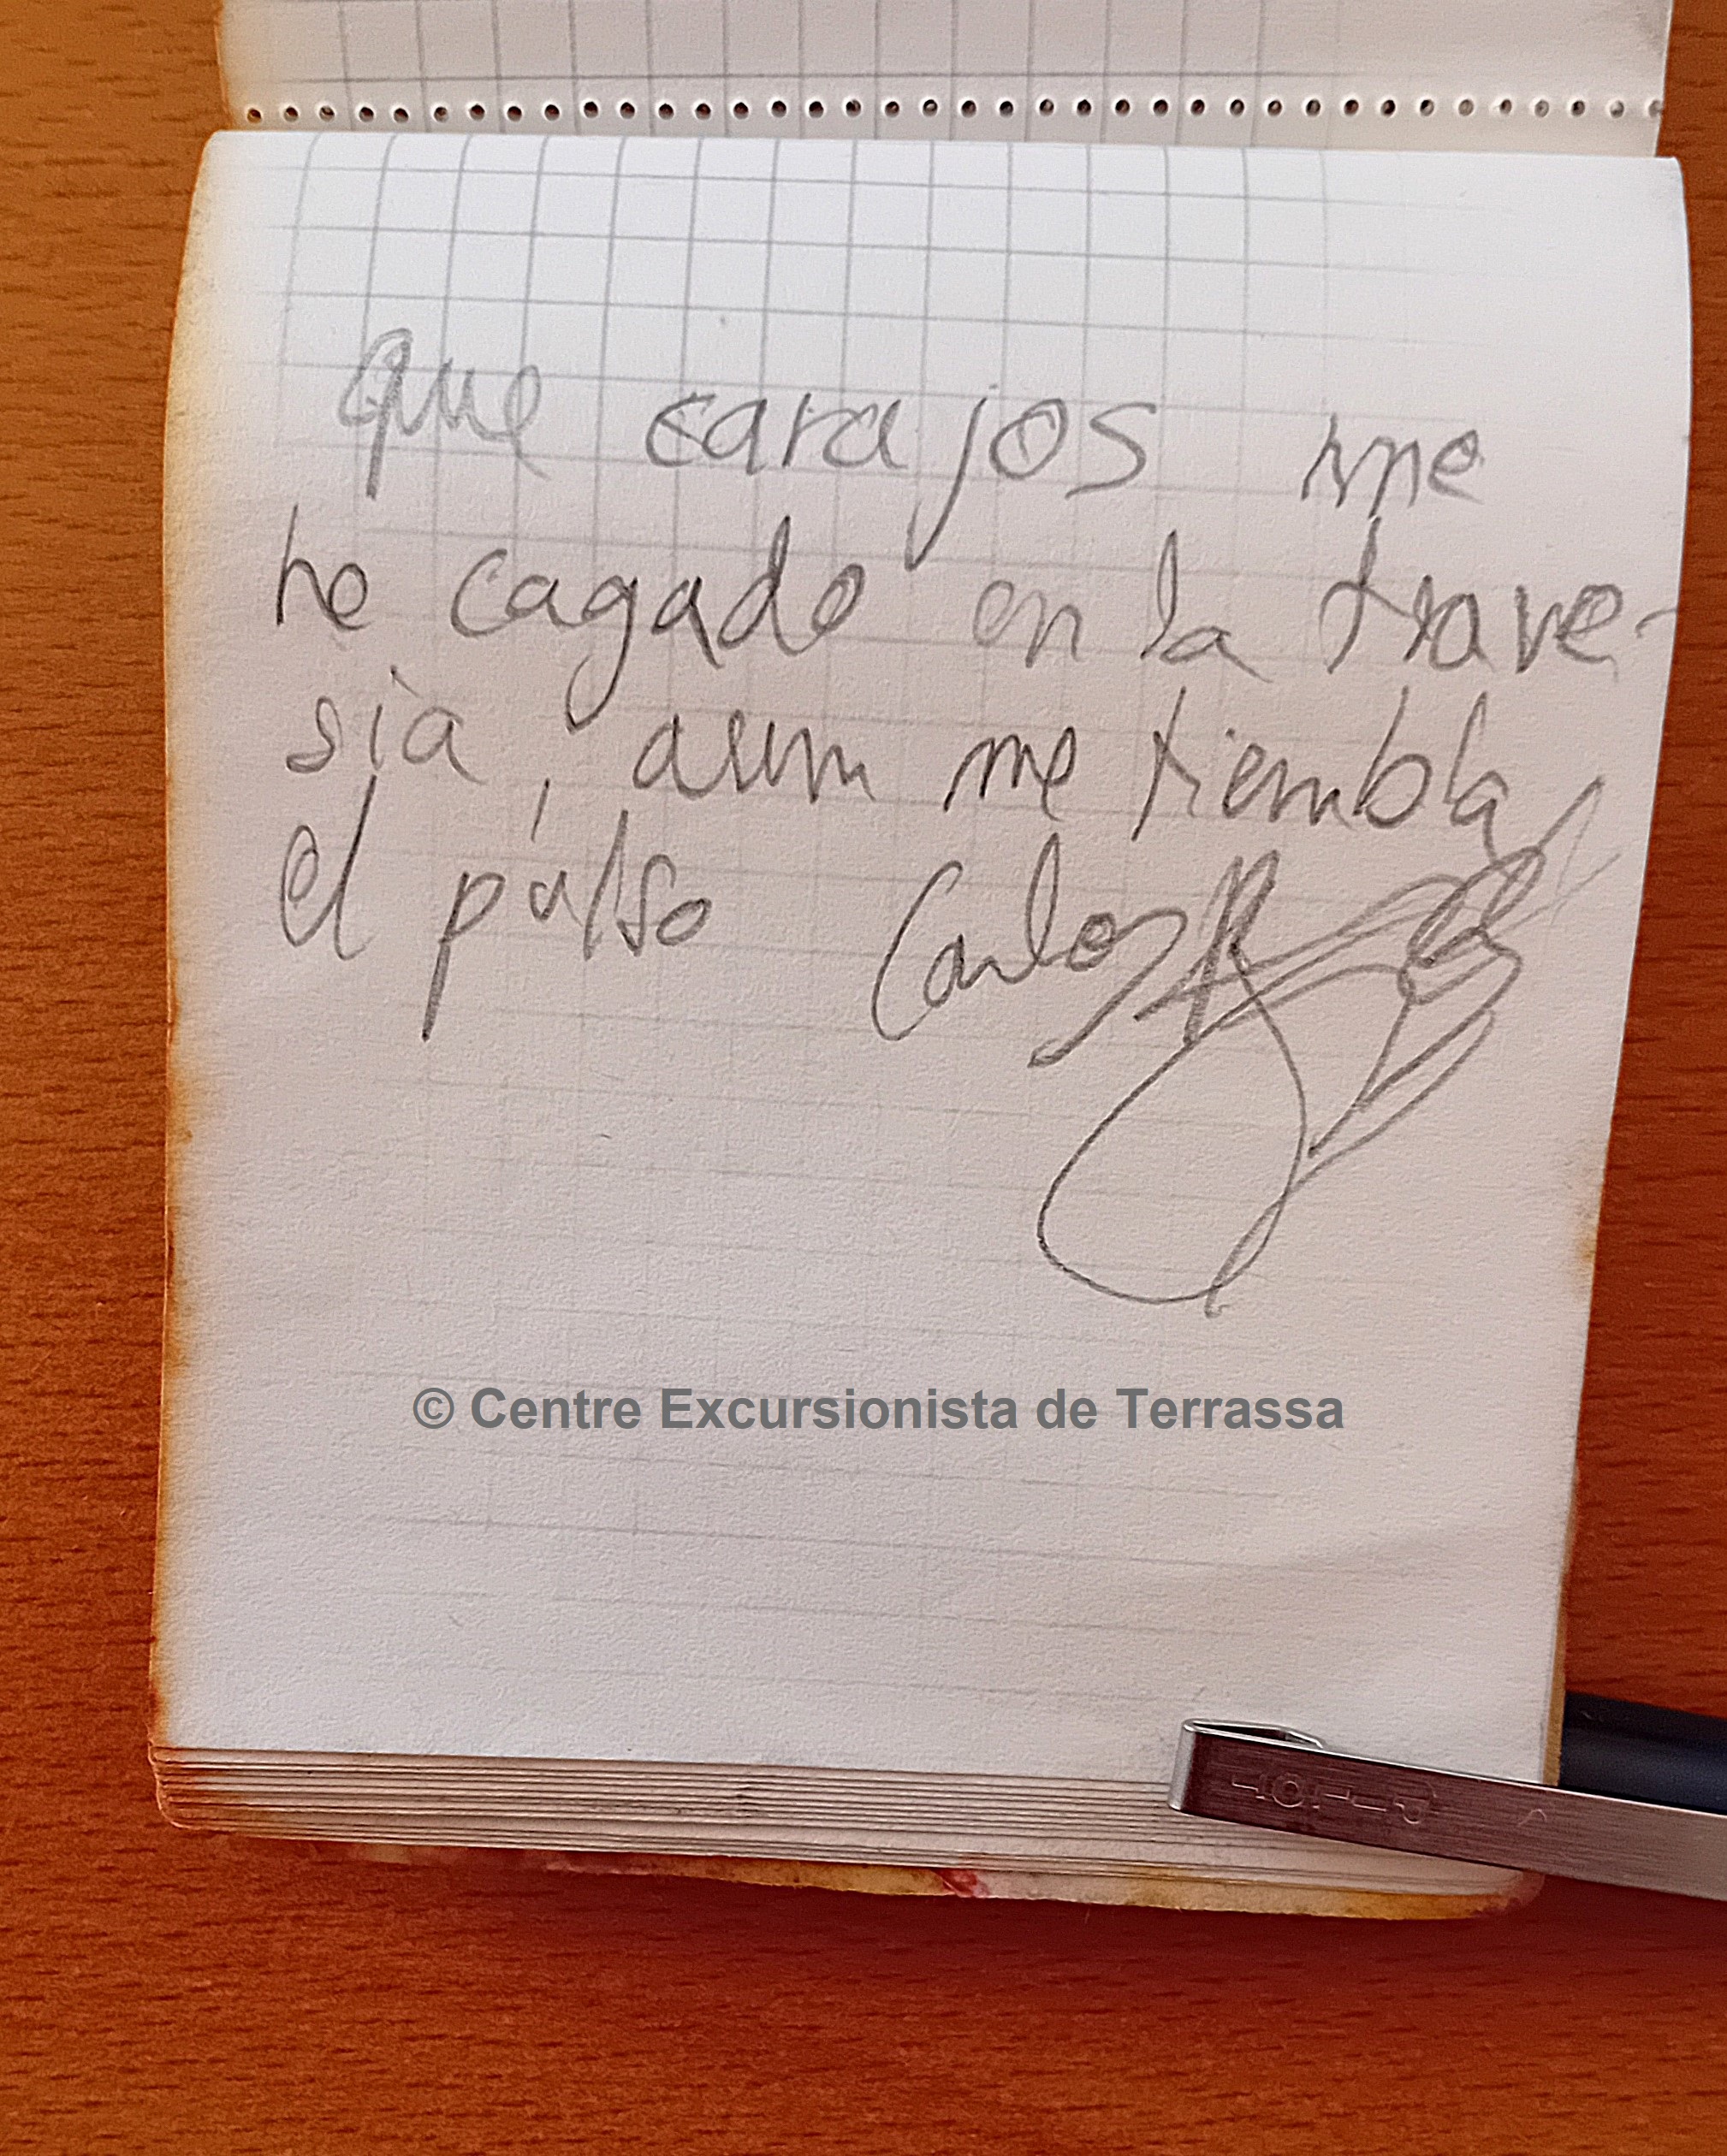 que carajos me
he cagado en la trave-
sia, aun me tiembla
el pulso Carlos
© Centre Excursionista de Terrassa
PILOT